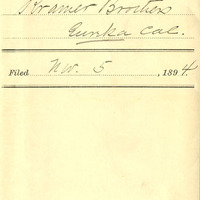 Kramer Brothers
Eureka Cal.
Filed Nov. 5, 1894.